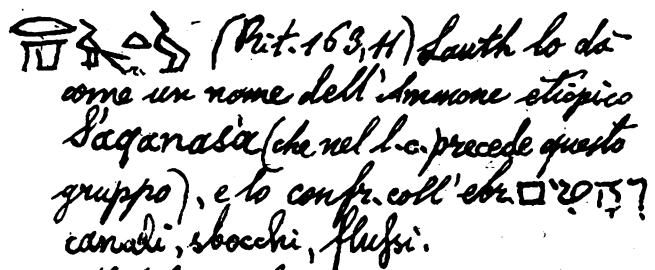 (Rit. 163, 11) Lauth lo dà
come un nome dell'Ammone etiopico
S'aqanas'a (che nel l.c. precede questo
gruppo), e lo confr. coll'ebr. רהטים
canali, sbocchi, flussi.